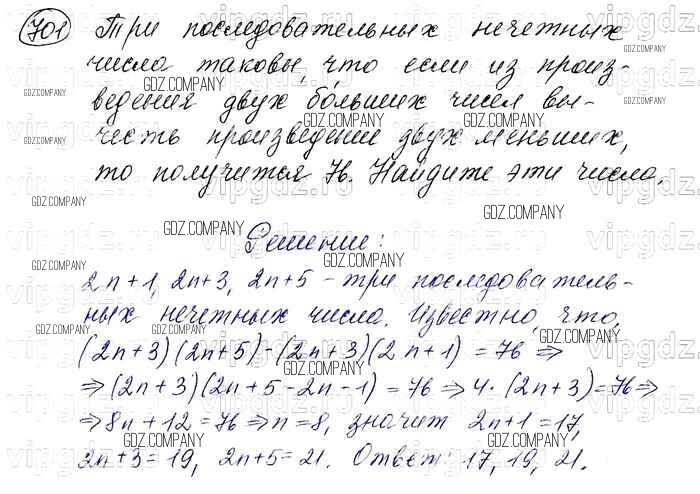 701 Три последовательных нечетных
числа таковы, что если из произ-
ведения двух больших чисел вы-
честь произведение двух меньших,
то получится 76. Найдите эти числа.
Решение:
2n+1, 2n+3, 2n+5 - три последователь-
ных нечетных числа. Известно, что,
(2n+3)(2n+5)-(2n+3)(2n+1) = 76 ⇒
⇒ (2n+3)(2n+5-2n-1) = 76 ⇒ 4·(2n+3)=76 ⇒
⇒ 8n+12=76 ⇒ n=8, значит 2n+1=17,
2n+3=19, 2n+5=21. Ответ: 17, 19, 21.
GDZ.COMPANY
vipgdz.ru